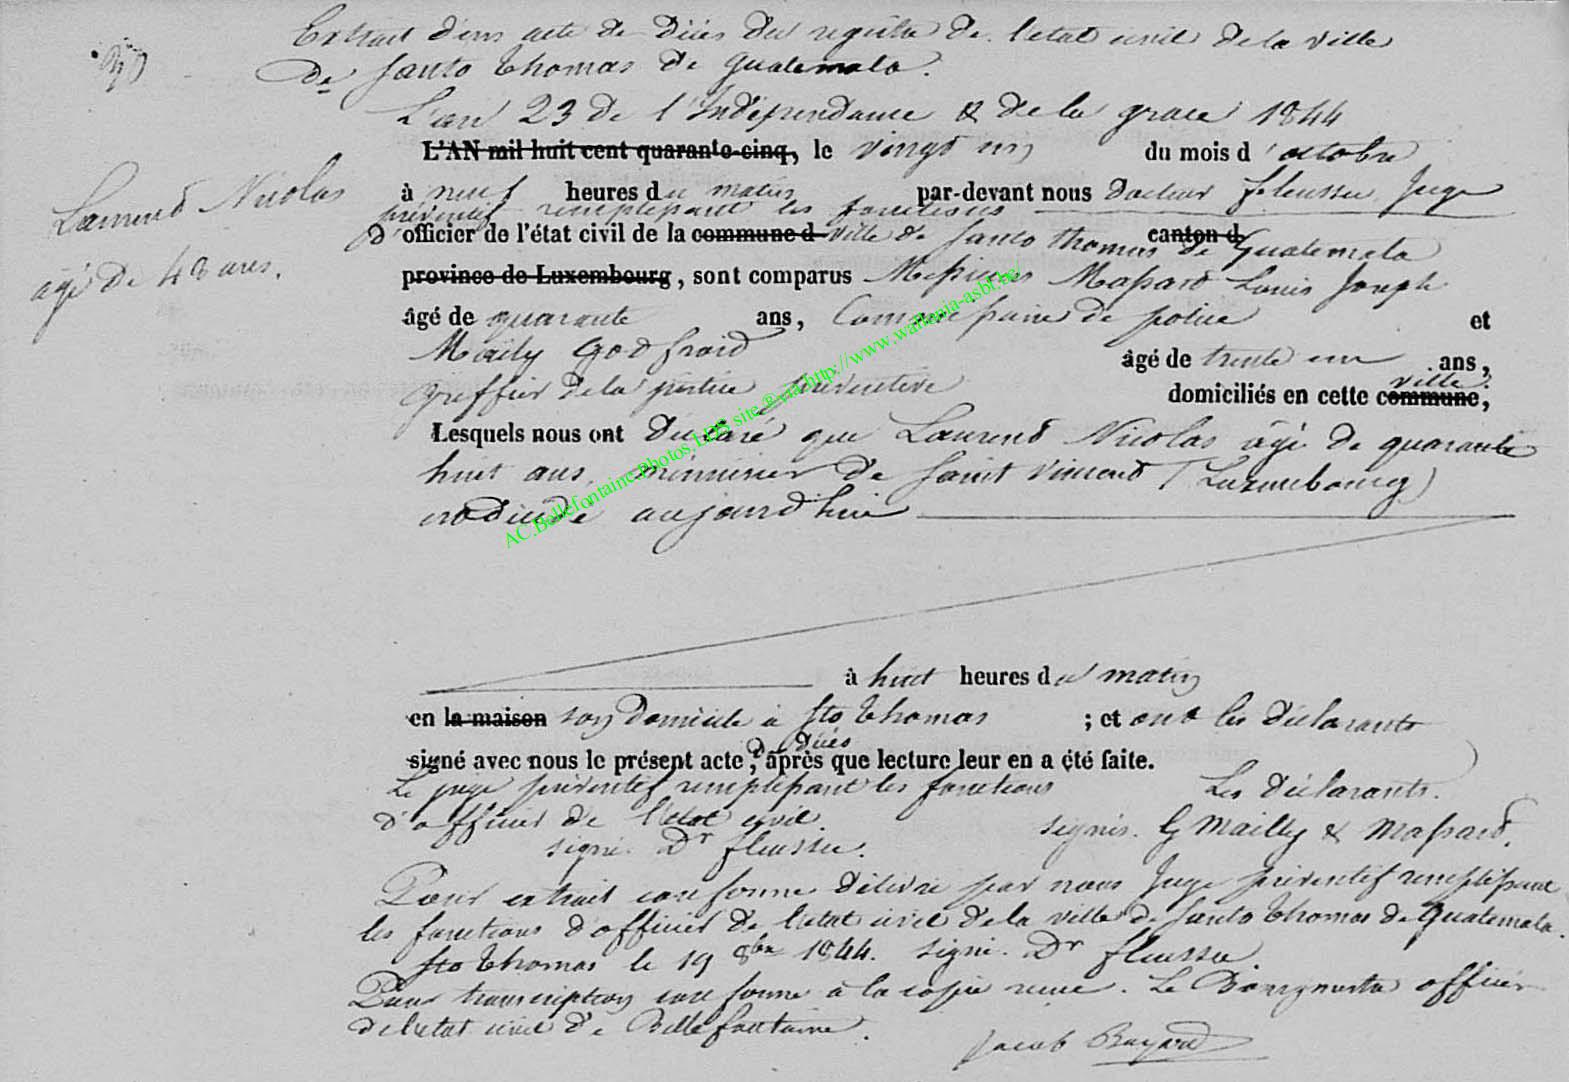 Extrait d'un acte de Décès du registre de l'etat civil de la ville
de Santo Thomas de Guatemala.
L'an 23 de l'Indépendance & de la grace 1844
L'AN mil huit cent quarante-cinq, le vingt un du mois d'octobre
Laurend Nicolas
âgé de 48 ans.
à neuf heures du matin par-devant nous Docteur Fleussu Juge
préventif remplissant les fonctions
d'officier de l'état civil de la commune d ville de Santo Thomas de Guatemala canton d
province de Luxembourg, sont comparus Messieurs Massard Louis Joseph
âgé de quarante ans, Commissaire de police et
Mailly Godfroid âgé de trente un ans,
greffier de la justice préventive domiciliés en cette commune, ville
Lesquels nous ont déclaré que Laurend Nicolas âgé de quarante
huit ans, menuisier de Saint Vincent (Luxembourg)
est décédé aujourd'hui
à huit heures du matin
en la maison son domicile à Sto Thomas ; et ont les déclarants
signé avec nous le présent acte, de décès après que lecture leur en a été faite.
Le juge préventif remplissant les fonctions Les déclarants.
d'officier de l'état civil.
signé. Dr Fleussu. signés. G Mailly & Massard.
Pour extrait conforme délivré par nous Juge préventif remplissant
les fonctions d'officier de l'état civil de la ville de Santo Thomas de Guatemala.
Sto Thomas le 19 8bre 1844. signé. Dr Fleussu.
Pour transcription conforme à la copie reçue. Le Bourgmestre officier
de l'etat civil de Bellefontaine.
Jacob Bayard
AC.Bellefontaine.Photos LDS site ® via http://www.wallonia-asbl.be